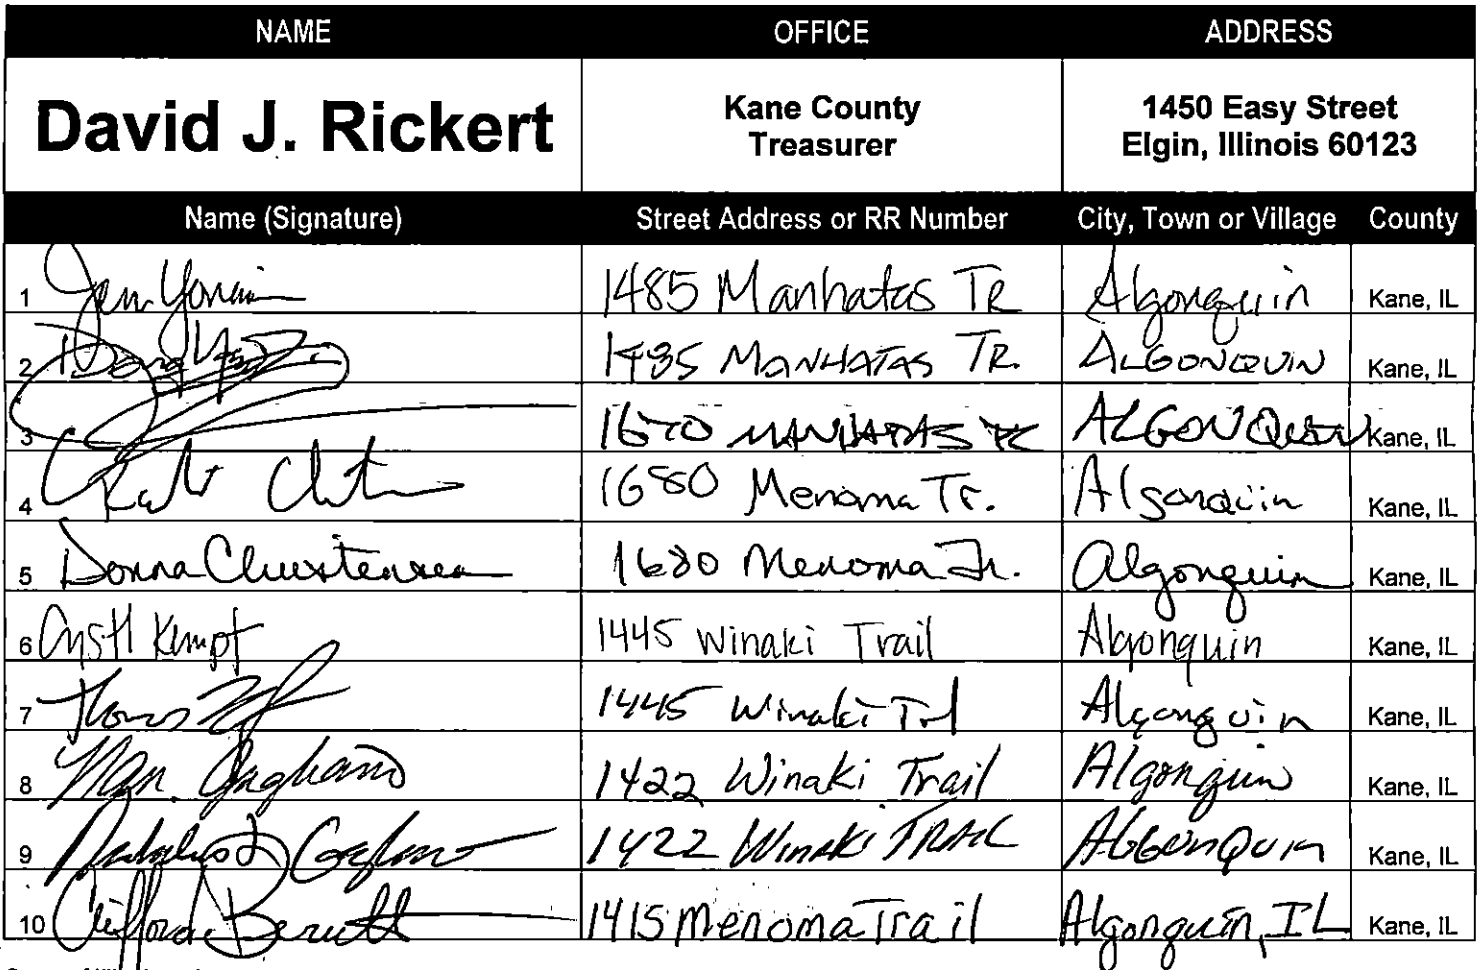 NAME OFFICE ADDRESS
David J. Rickert Kane County Treasurer 1450 Easy Street Elgin, Illinois 60123
Name (Signature) Street Address or RR Number City, Town or Village County
1 Jen 1485 Manhatas TR Algonquin Kane, IL
2 Doug 1485 MANHATAS TR. ALGONQUIN Kane, IL
3 1670 MANHATAS TR ALGONQUIN Kane, IL
4 1680 Menoma Tr. Algonquin Kane, IL
5 Donna Christensen 1680 Menoma Tr. Algonquin Kane, IL
6 Kempf 1445 Winaki Trail Algonquin Kane, IL
7 Thomas 1445 Winaki Trl Algonquin Kane, IL
8 1422 Winaki Trail Algonquin Kane, IL
9 1422 Winaki TRAIL ALGONQUIN Kane, IL
10 Clifford 1415 Menoma Trail Algonquin, IL Kane, IL